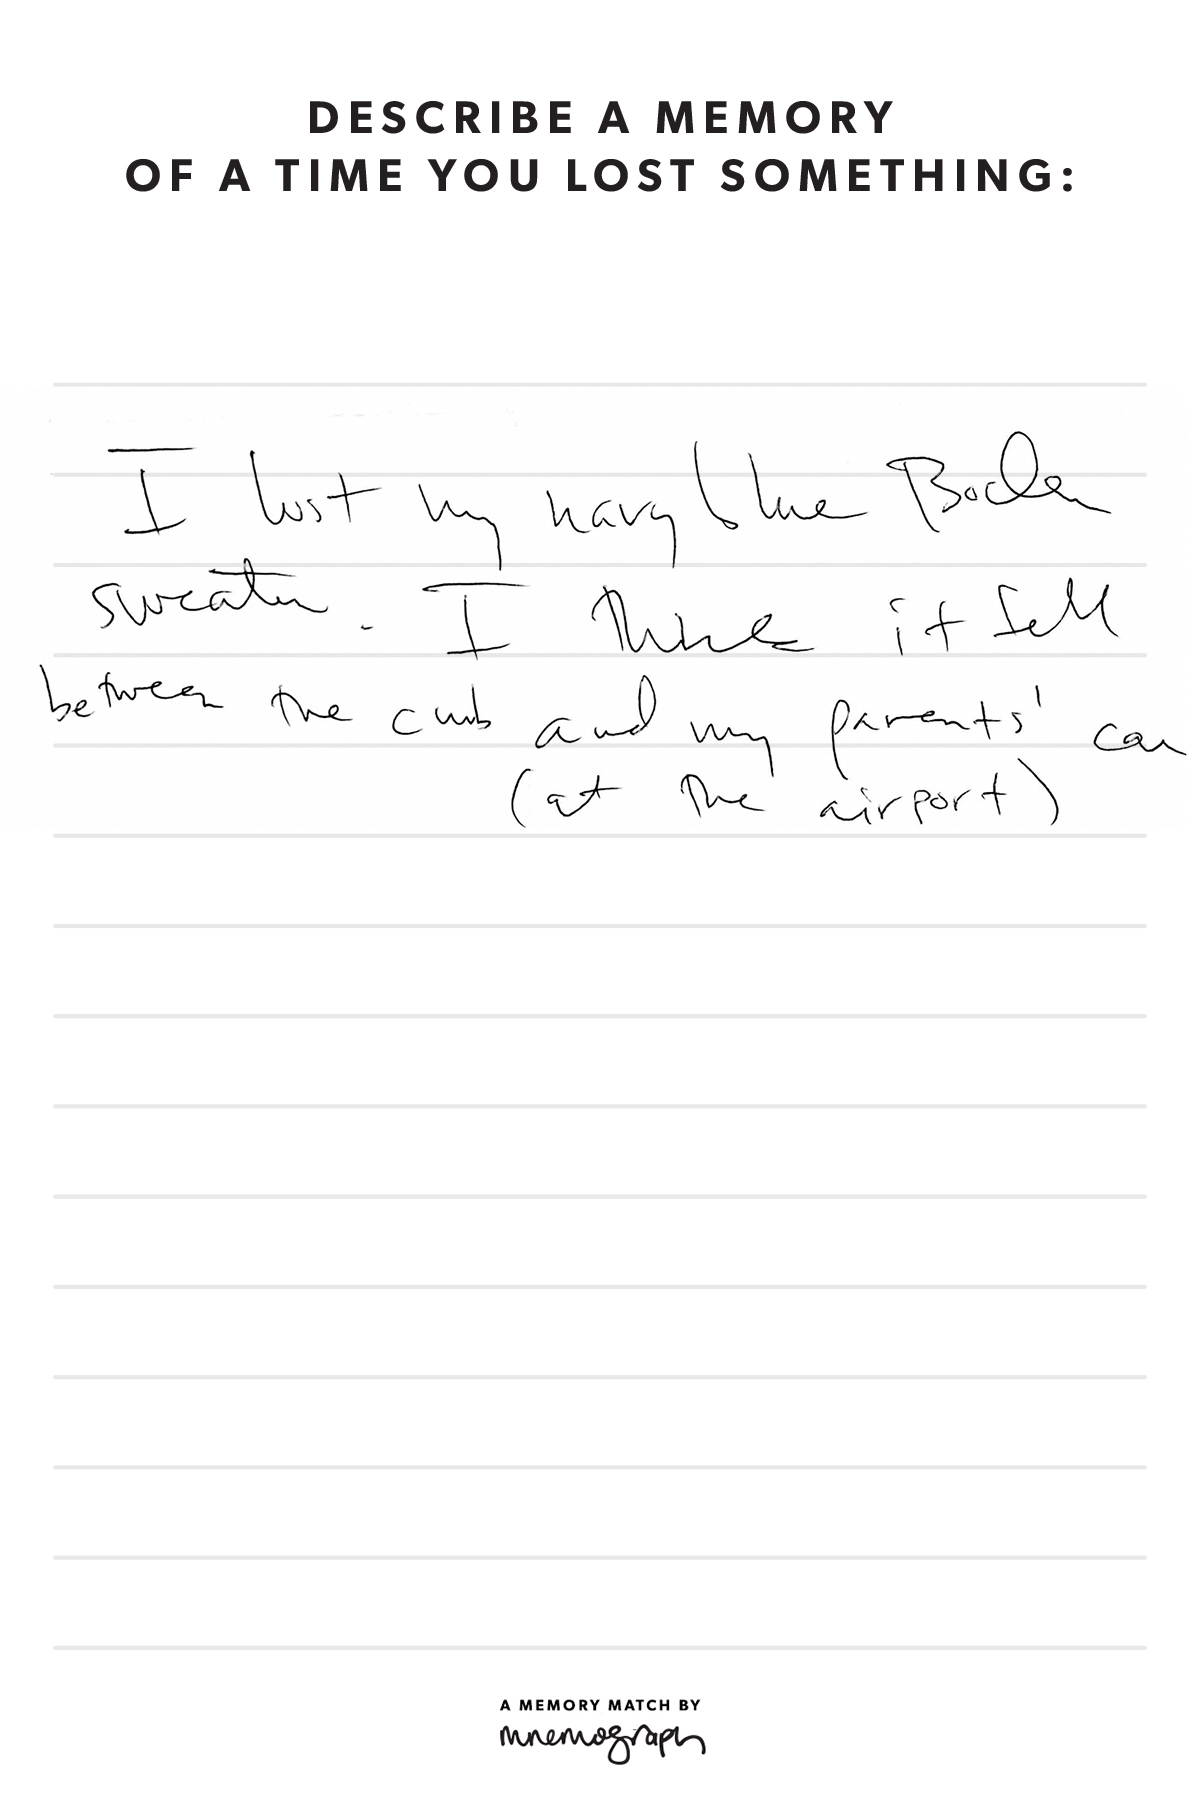 DESCRIBE A MEMORY
OF A TIME YOU LOST SOMETHING:
I lost my navy blue Boden
sweater. I think it fell
between the curb and my parents' car
(at the airport)
A MEMORY MATCH BY
mnemograph